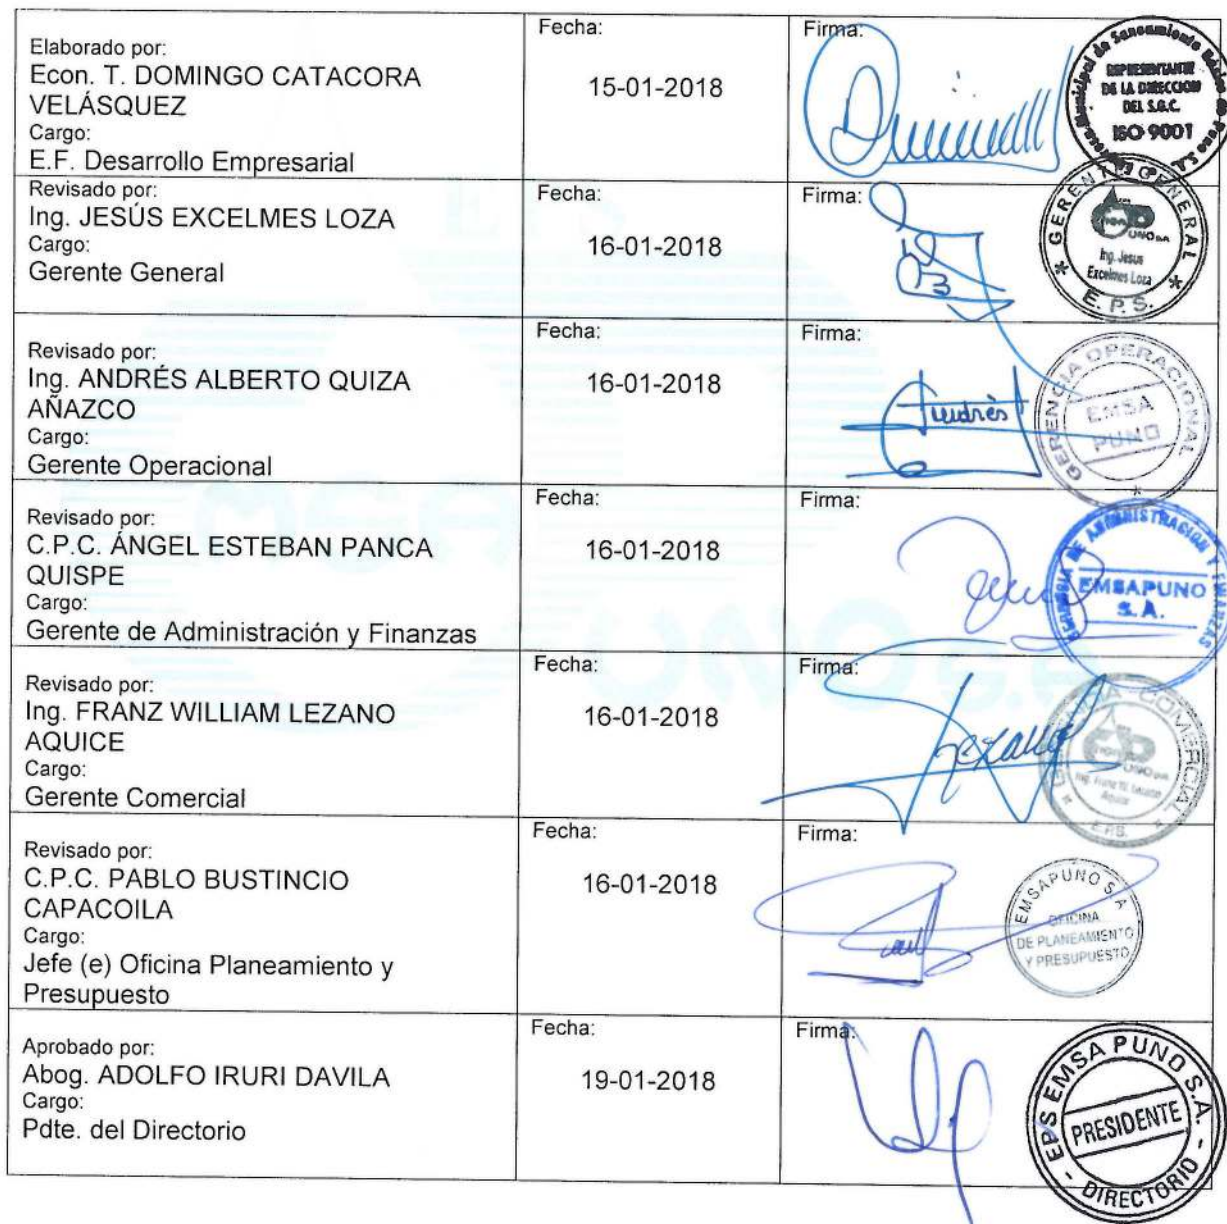 Elaborado por:
Econ. T. DOMINGO CATACORA
VELÁSQUEZ
Cargo:
E.F. Desarrollo Empresarial
Fecha:
15-01-2018
Firma:
REPRESENTANTE
DE LA DIRECCION
DEL S.G.C.
ISO 9001
Revisado por:
Ing. JESÚS EXCELMES LOZA
Cargo:
Gerente General
Fecha:
16-01-2018
Firma:
GERENTE GENERAL
PUNO S.A.
Ing. Jesus
Excelmes Loza
E.P.S.
Revisado por:
Ing. ANDRÉS ALBERTO QUIZA
AÑAZCO
Cargo:
Gerente Operacional
Fecha:
16-01-2018
Firma:
Andrés
GERENCIA OPERACIONAL
EMSA
PUNO
Revisado por:
C.P.C. ÁNGEL ESTEBAN PANCA
QUISPE
Cargo:
Gerente de Administración y Finanzas
Fecha:
16-01-2018
Firma:
GERENCIA DE ADMINISTRACION Y FINANZAS
EMSAPUNO
S.A.
Revisado por:
Ing. FRANZ WILLIAM LEZANO
AQUICE
Cargo:
Gerente Comercial
Fecha:
16-01-2018
Firma:
Lezano
GERENCIA COMERCIAL
E.P.S.
Revisado por:
C.P.C. PABLO BUSTINCIO
CAPACOILA
Cargo:
Jefe (e) Oficina Planeamiento y
Presupuesto
Fecha:
16-01-2018
Firma:
EMSAPUNO S.A
OFICINA
DE PLANEAMIENTO
Y PRESUPUESTO
Aprobado por:
Abog. ADOLFO IRURI DAVILA
Cargo:
Pdte. del Directorio
Fecha:
19-01-2018
Firma:
EPS EMSA PUNO S.A.
PRESIDENTE
- DIRECTORIO -